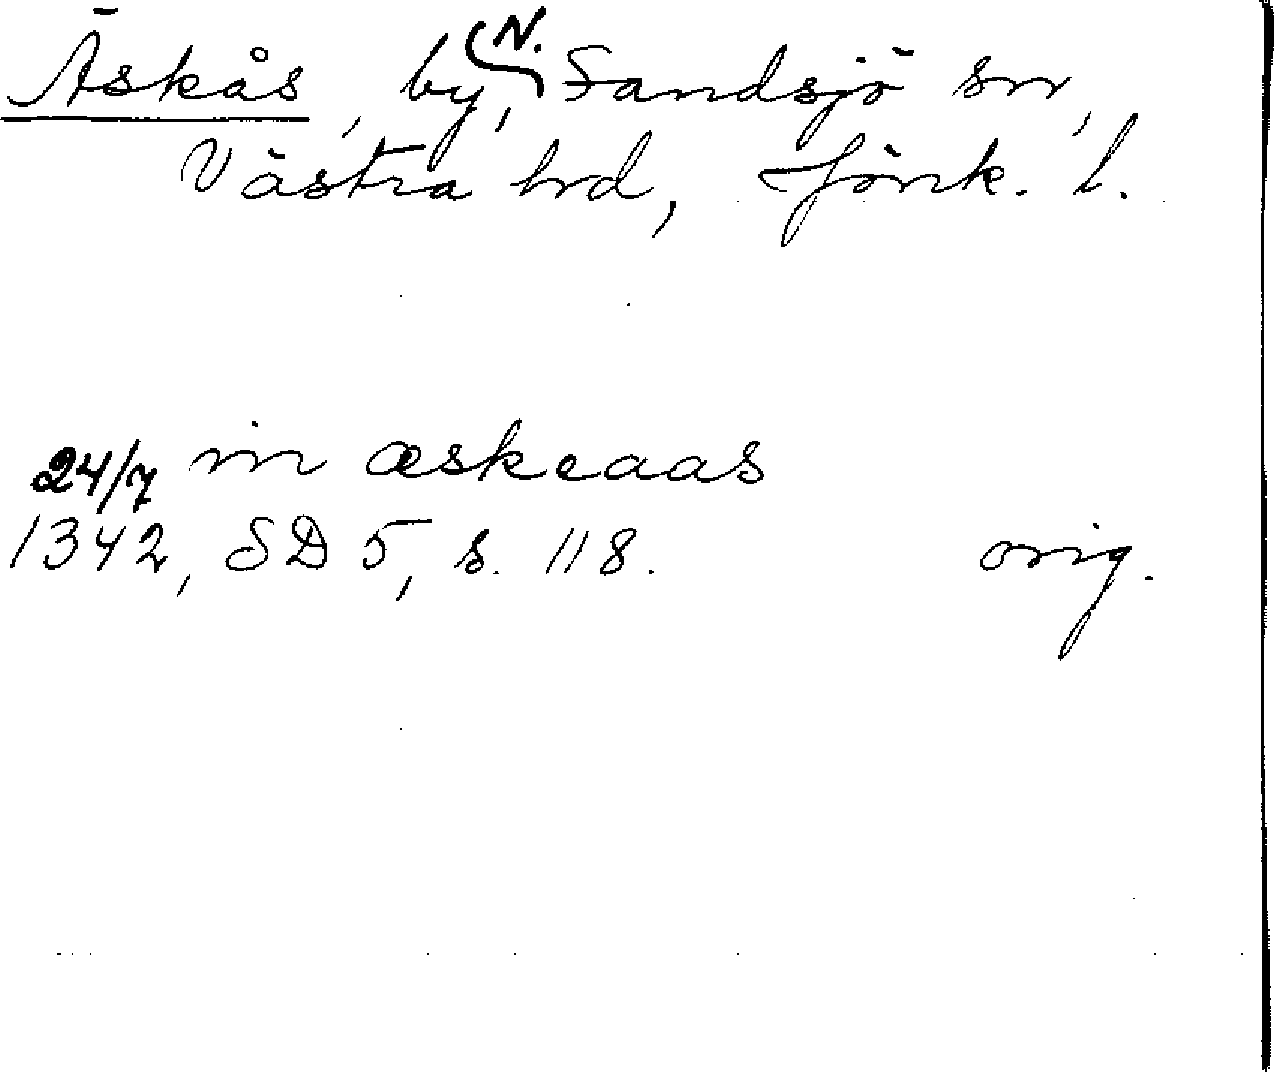 Äskås, by, N. Sandsjö sn,
Västra hd, Jönk. l.
24/7 in æskeaas
1342, SD 5, s. 118. orig.